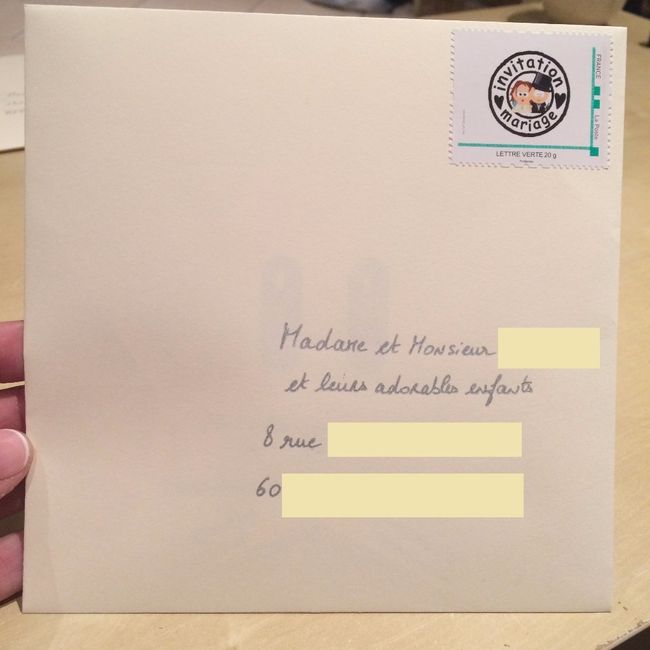 invitation
mariage
FRANCE
La Poste
LETTRE VERTE 20 g
Madame et Monsieur
et leurs adorables enfants
8 rue
60